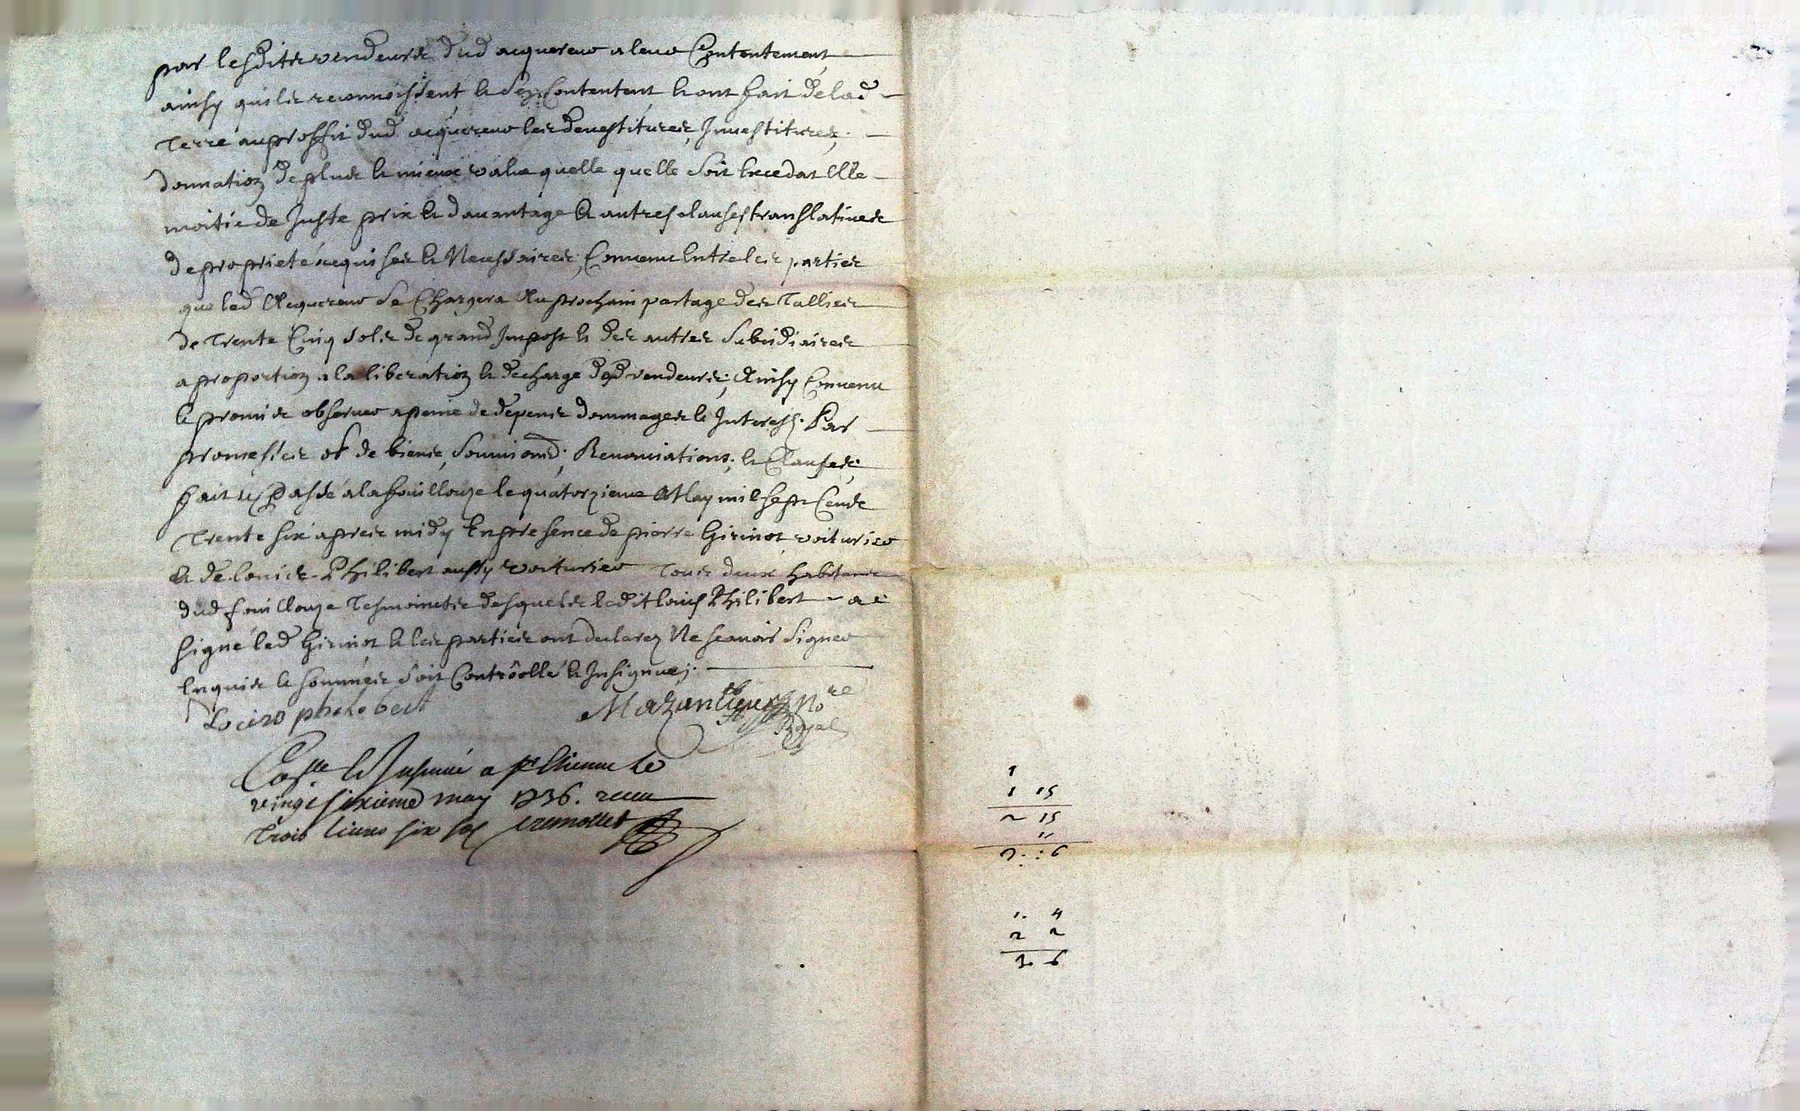 par lesdits vendeurs dud acquereur a leur Contentement
ainsy quils le reconnoissent, & sen Contentent & ont fait de lad
Terre au proffit dud acquereur les devestitures, Investitures,
donnation de plus & mieux value quelle quelle soit Excedat Elle
moitie de Juste prix & davantage & autres clauses translatives
de proprieté requises & Necessaires, Convenu Entre les parties
que led Acquereur se Chargera Au prochain partage des Tallies
de Trente Cinq sols de grand Impost & des autres subsidiaires
a proportion a la liberation & decharge desd vendeurs; Ainsy Convenu
& promis observer a peine de depens dommages & Interests. Par
promesses obt de biens, soumissions, Renonciations, & Clauses;
fait & Passé a la fouillouze le quatorzieme May mil sept Cents
Trente six apres midy En presence de pierre Girinot voiturier
& de louis Philibert aussy voiturier Tous deux habitants
dud fouillouze Tesmoins desquels ledit louis Philibert a
signé led Girinot & les parties ont declarez Ne scavoir signer
Enquis & sommés soit Controollé & Insignué;
Loüis philibert
Mazantieux No.re
Royal
Con.lle & Insinué a s.t Etienne le
vingt sixieme may 1736. receu
Trois livres six sols
1
1 15
2 15
11
3 : : 6
1. 4
2 2
3 6